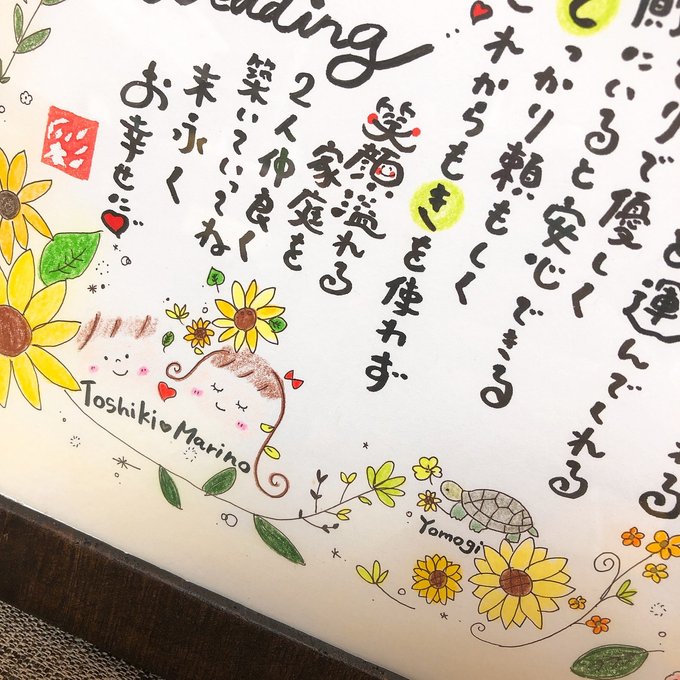 edding
を運んでくれる
りで優しく
にいると安心できる
っかり頼もしく
これからもきを使わず
笑顔溢れる
家庭を
2人仲良く
築いていってね
末永く
お幸せに
Toshiki♥Marino
Yomogi